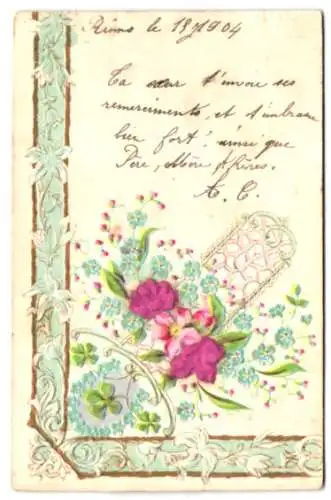 Reims le 18/7/04
Ta sœur t'envoie ses
remerciments, et t'embrasse
bien fort, ainsi que
Père, Mère, frères.
A. C.